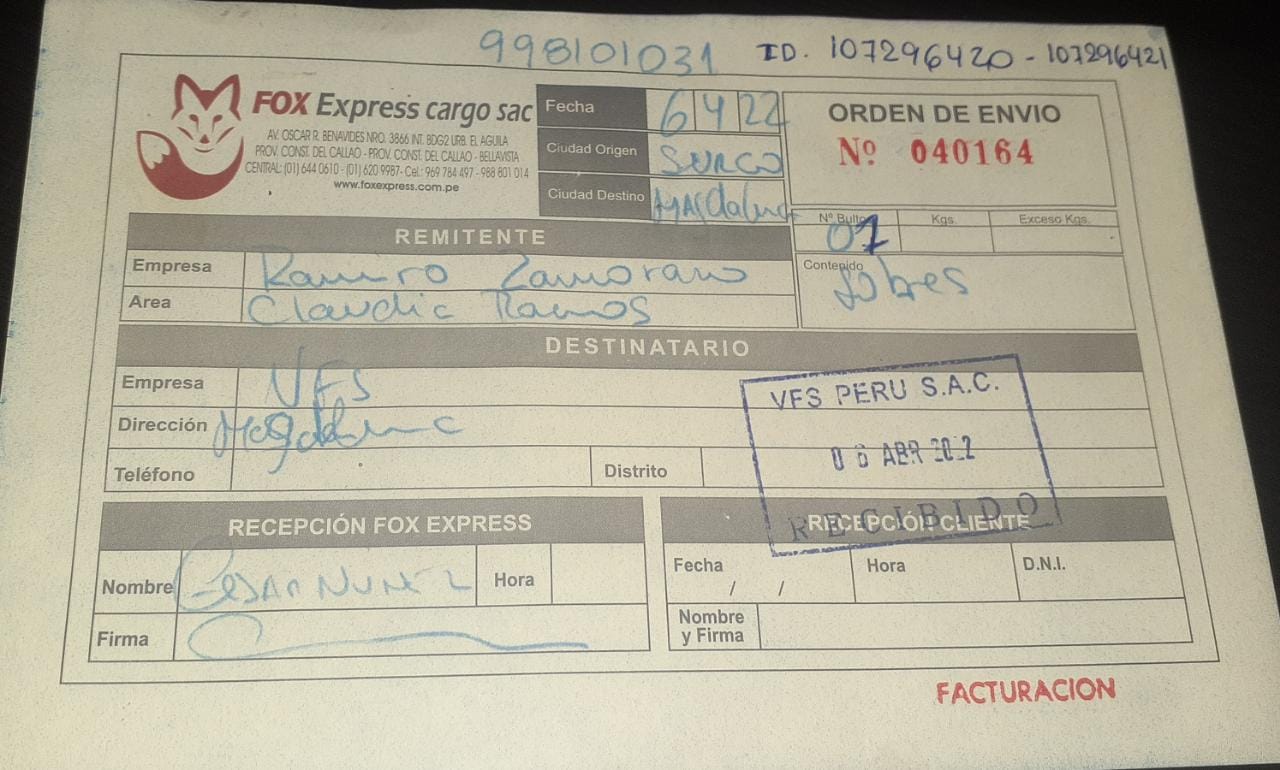 998101031 ID. 107296420 - 107296421
FOX Express cargo sac
AV. OSCAR R. BENAVIDES NRO. 3866 INT. BDG2 URB. EL AGUILA
PROV. CONST. DEL CALLAO - PROV. CONST. DEL CALLAO - BELLAVISTA
CENTRAL: (01) 644 0610 - (01) 620 9987- Cel.: 969 784 497 - 988 801 014
www.foxexpress.com.pe
Fecha 6 4 22
Ciudad Origen SURCO
Ciudad Destino Magdalena
ORDEN DE ENVIO
Nº 040164
Nº Bulto Kgs. Exceso Kgs.
01
Contenido
Sobres
REMITENTE
Empresa Ramiro Zamorano
Area Claudia Ramos
DESTINATARIO
Empresa VFS
Dirección Magdalena
Teléfono Distrito
VFS PERU S.A.C.
06 ABR 2022
RECIBIDO
RECEPCIÓN FOX EXPRESS
Nombre CESAR NUNEZ Hora
Firma
RECEPCIÓN CLIENTE
Fecha / / Hora D.N.I.
Nombre
y Firma
FACTURACION